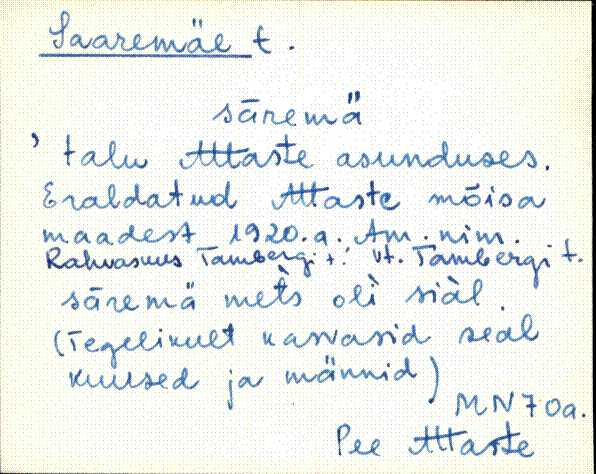 Saaremäe t.
säremä̆
' talu Attaste asunduses.
Eraldatud Attaste mõisa
maadest 1920.a. Am. nim.
Rahvasuus Tambergi t.! vt. Tambergi t.
säremä mets oli siàl
(Tegelikult kasvasid seal
kuused ja männid)
MN 70a.
Pee Attaste